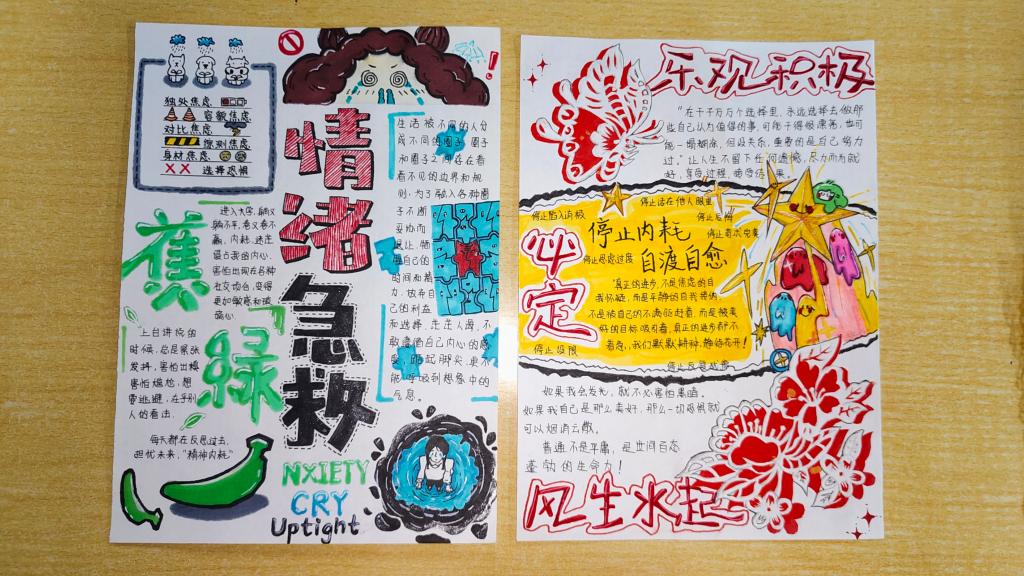 独处焦虑
容貌焦虑
对比焦虑
预测焦虑
身材焦虑
选择恐惧
情绪急救
蕉
绿
进入大学,躺又
躺不平,卷又卷不
赢,内耗、迷茫
霸占我的内心,
害怕出现在各种
社交场合,变得
更加敏感和疑
上台讲话的
时候,总是紧张
发抖,害怕出糗
害怕尴尬,想
要逃避,在乎别
人的看法.
每天都在反思过去,
担忧未来,“精神内耗”
生活被不同的人分
成不同的圈子,圈子
和圈子之间存在看
看不见的边界和规
则.为了融入各种圈
子不断
妥协而
退让,牺
牲自己的
时间和精
力,放弃自
己的利益
和选择.走走人海,不
敢遵循自己内心的感
受,踮起脚尖,更不
能呼吸到想像中的
气息.
NXIETY
CRY
Uptight
乐观积极
“在千千万万个选择里,永远选择去做那
些自己认为值得的事,可能干得很漂亮,也可
能一塌糊涂,但没关系,重要的是自己努力
过.”让人生不留下任何遗憾,尽力而为就
好,享受过程,接受结果.
停止陷入消极
停止活在他人眼里
停止后悔
停止苛求完美
停止内耗
自渡自愈
停止思虑过度
心定
“真正的进步,不是焦虑的自
我怀疑,而是平静的自我接纳.
不是被自己的不满驱赶着,而是被美
好的目标吸引着,真正的进步都不
着急,我们默默耕种,静待花开!
停止设限
停止反复犹豫
如果我会发光,就不必害怕黑暗.
如果我自己是那么美好,那么一切恐惧就
可以烟消云散.
普通不是平庸,是世间百态
蓬勃的生命力!
风生水起